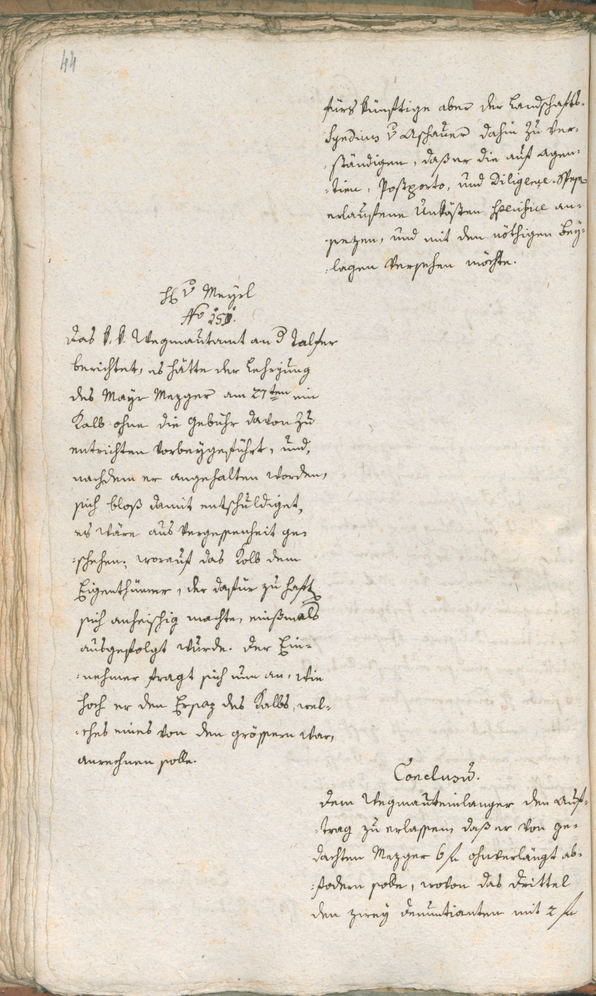 44
fürs künftige aber der Landschafts-
Syndicus v Aschauer dahin zu ver-
-ständigen, daß er die auf Agen-
-tien, Postporto, und Diligence-Spesen
erlaufene Unkösten specifice an-
sezen, und mit den nöthigen Bey-
-lagen versehen möchte.
H v Meyrl
No 250.
Das k. k. Wegmautamt an d Talfer
berichtet, es hätte der Lehrjung
des Mayr Mezger am 27ten ein
Kalb ohne die Gebühr davon zu
entrichten vorbeygeführt, und,
nachdem er angehalten worden,
sich bloß damit entschuldiget,
es wäre aus Vergessenheit ge-
-schehen; worauf das Kalb dem
Eigenthümer, der dafür zu haften
sich anheischig machte, einßmals
ausgefolgt wurde. Der Ein-
-nehmer fragt sich nun an, wie
hoch er den Ersaz des Kalbs, wel-
-ches eines von den grössern war,
anrechnen solle.
Conclusum.
Dem Wegmauteinlanger den Auf-
-trag zu erlassen, daß er von ge-
dachten Mezger 6 f ohnverlängt ab-
-fodern solle, wovon das Drittel
den zwey Denuntianten mit 2 f